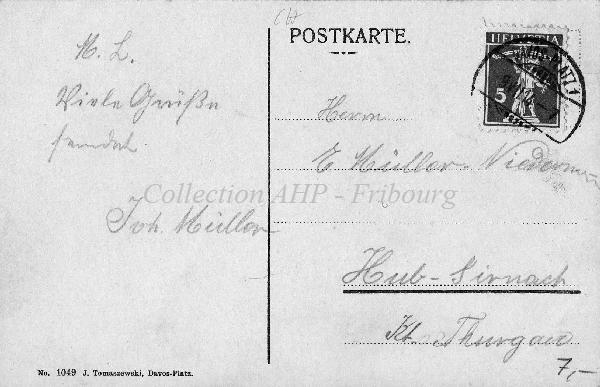 POSTKARTE.
HELVETIA
5
M. L.
Viele Grüße
sendet
Joh. Müller
Herrn
E Müller-
Hub-Sirnach
Kt. Thurgau
Collection AHP - Fribourg
7,-
No. 1049 J. Tomaszewski, Davos-Platz.